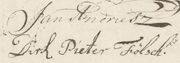 Jan Andriesz
Dirk Pieter Fölsch